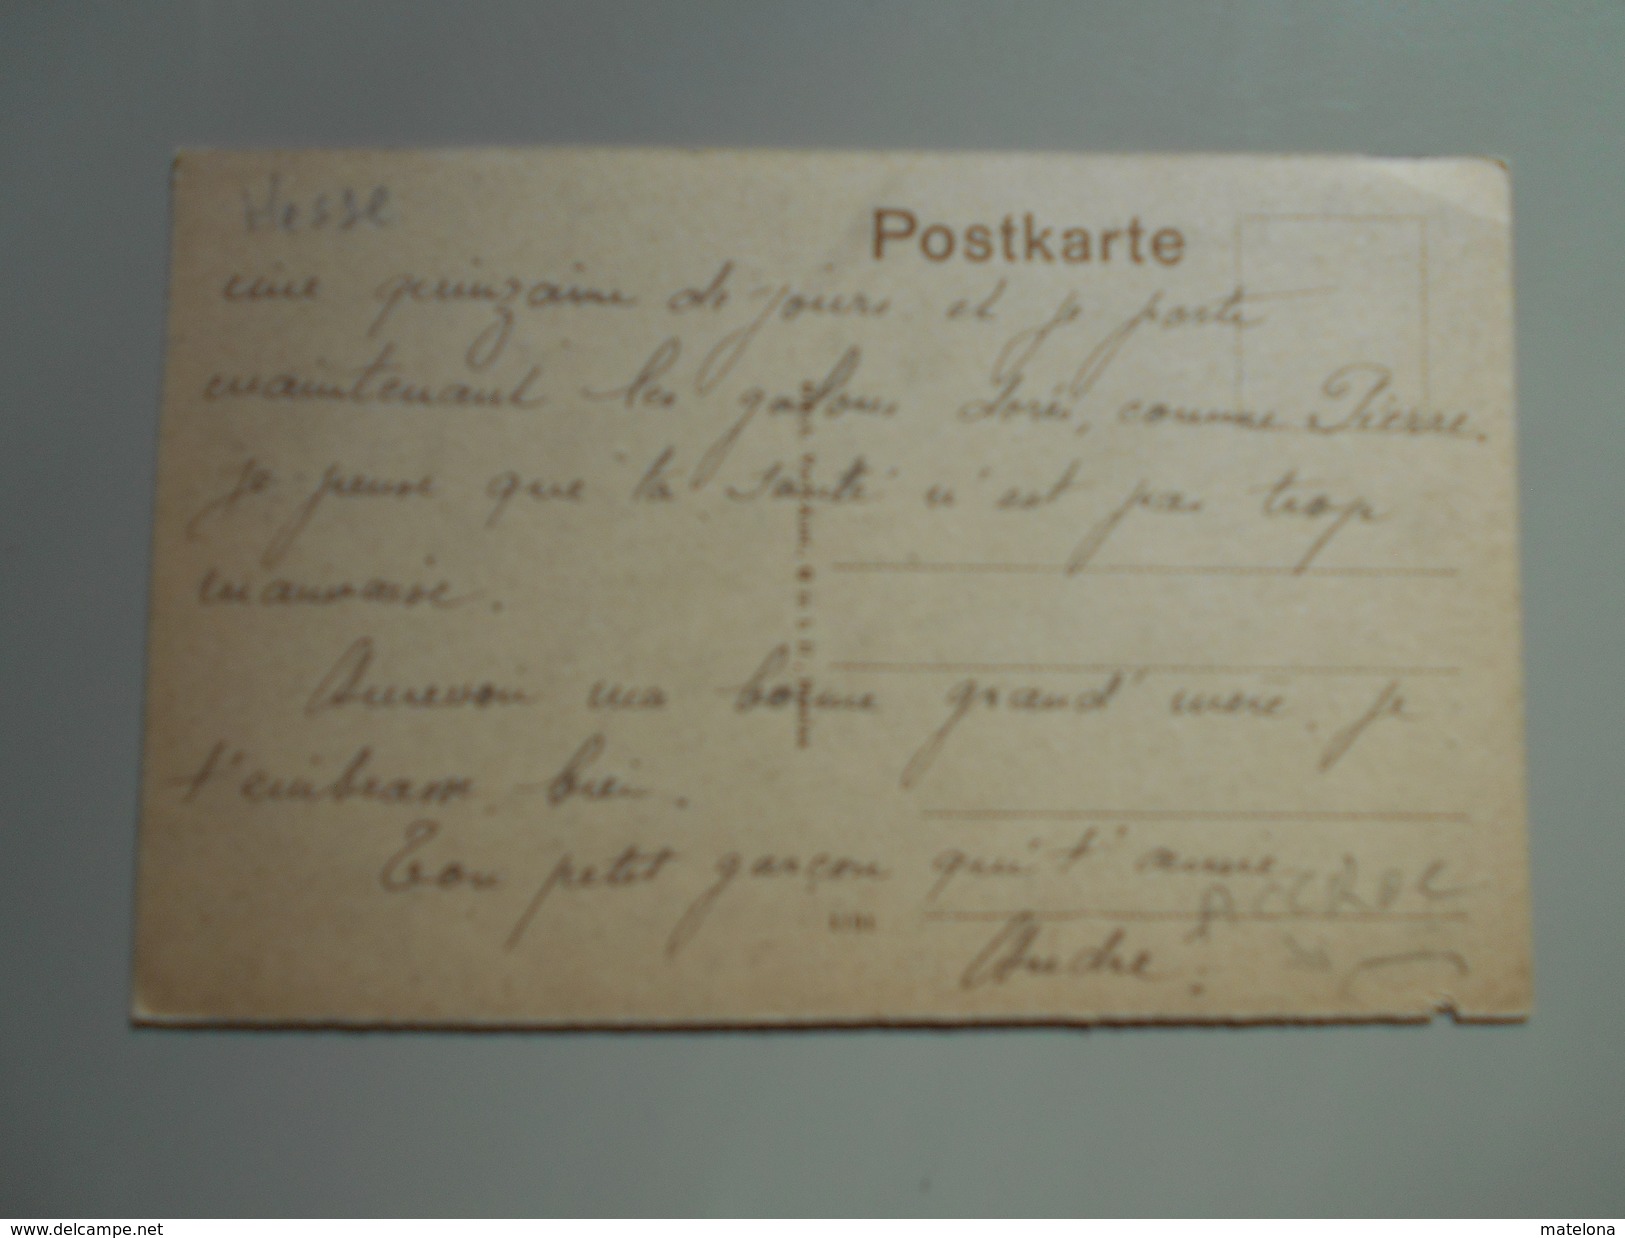 Hesse
Postkarte
une quinzaine de jours et je porte
maintenant les galons dorés, comme Pierre.
je pense que ta santé n'est pas trop
mauvaise.
Aurevoir ma bonne grand'mère je
t'embrasse bien.
Ton petit garçon qui t'aime
ACCROC
André.
www.delcampe.net
matelona